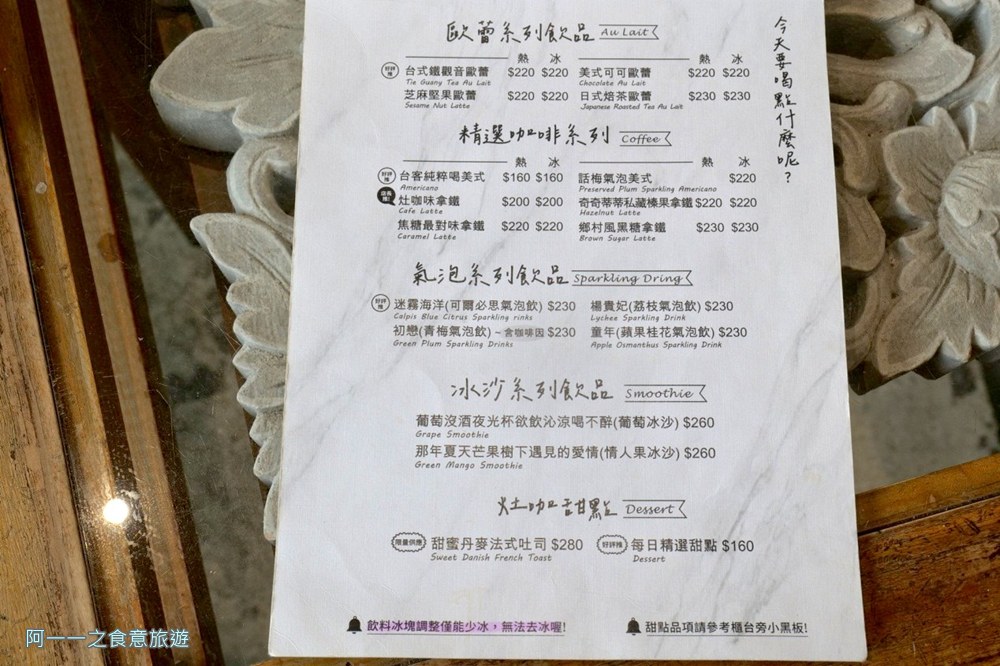 今天要喝點什麼呢？
歐蕾系列飲品 Au Lait
熱 冰 熱 冰
好評推 台式鐵觀音歐蕾 $220 $220 美式可可歐蕾 $220 $220
Tie Guany Tea Au Lait Chocolate Au Lait
芝麻堅果歐蕾 $220 $220 日式焙茶歐蕾 $230 $230
Sesame Nut Latte Japanese Roasted Tea Au Lait
精選咖啡系列 Coffee
熱 冰 熱 冰
好評推 台客純粹喝美式 $160 $160 話梅氣泡美式 $220
Americano Preserved Plum Sparkling Americano
店長推! 灶咖味拿鐵 $200 $200 奇奇蒂蒂私藏榛果拿鐵 $220 $220
Cafe Latte Hazelnut Latte
焦糖最對味拿鐵 $220 $220 鄉村風黑糖拿鐵 $230 $230
Caramel Latte Brown Sugar Latte
氣泡系列飲品 Sparkling Dring
好評推 迷霧海洋(可爾必思氣泡飲) $230 楊貴妃(荔枝氣泡飲) $230
Calpis Blue Citrus Sparkling rinks Lychee Sparkling Drink
初戀(青梅氣泡飲) ~ 含咖啡因 $230 童年(蘋果桂花氣泡飲) $230
Green Plum Sparkling Drinks Apple Osmanthus Sparkling Drink
冰沙系列飲品 Smoothie
葡萄沒酒夜光杯欲飲沁涼喝不醉(葡萄冰沙) $260
Grape Smoothie
那年夏天芒果樹下遇見的愛情(情人果冰沙) $260
Green Mango Smoothie
灶咖甜點 Dessert
限量供應 甜蜜丹麥法式吐司 $280 好評推 每日精選甜點 $160
Sweet Danish French Toast Dessert
飲料冰塊調整僅能少冰，無法去冰喔! 甜點品項請參考櫃台旁小黑板!
阿一一之食意旅遊